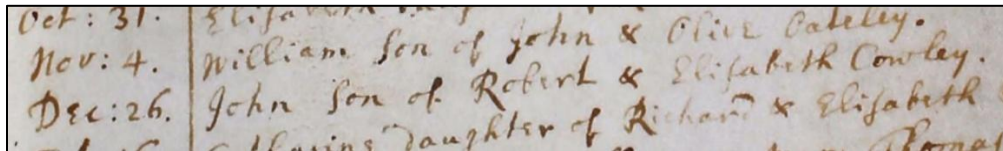 Oct: 31. Elisabeth
Nov: 4. William Son of John & Olive Oateley.
Dec: 26. John Son of Robert & Elisabeth Cowley.
Catharine Daughter of Richard & Elisabeth
Thomas